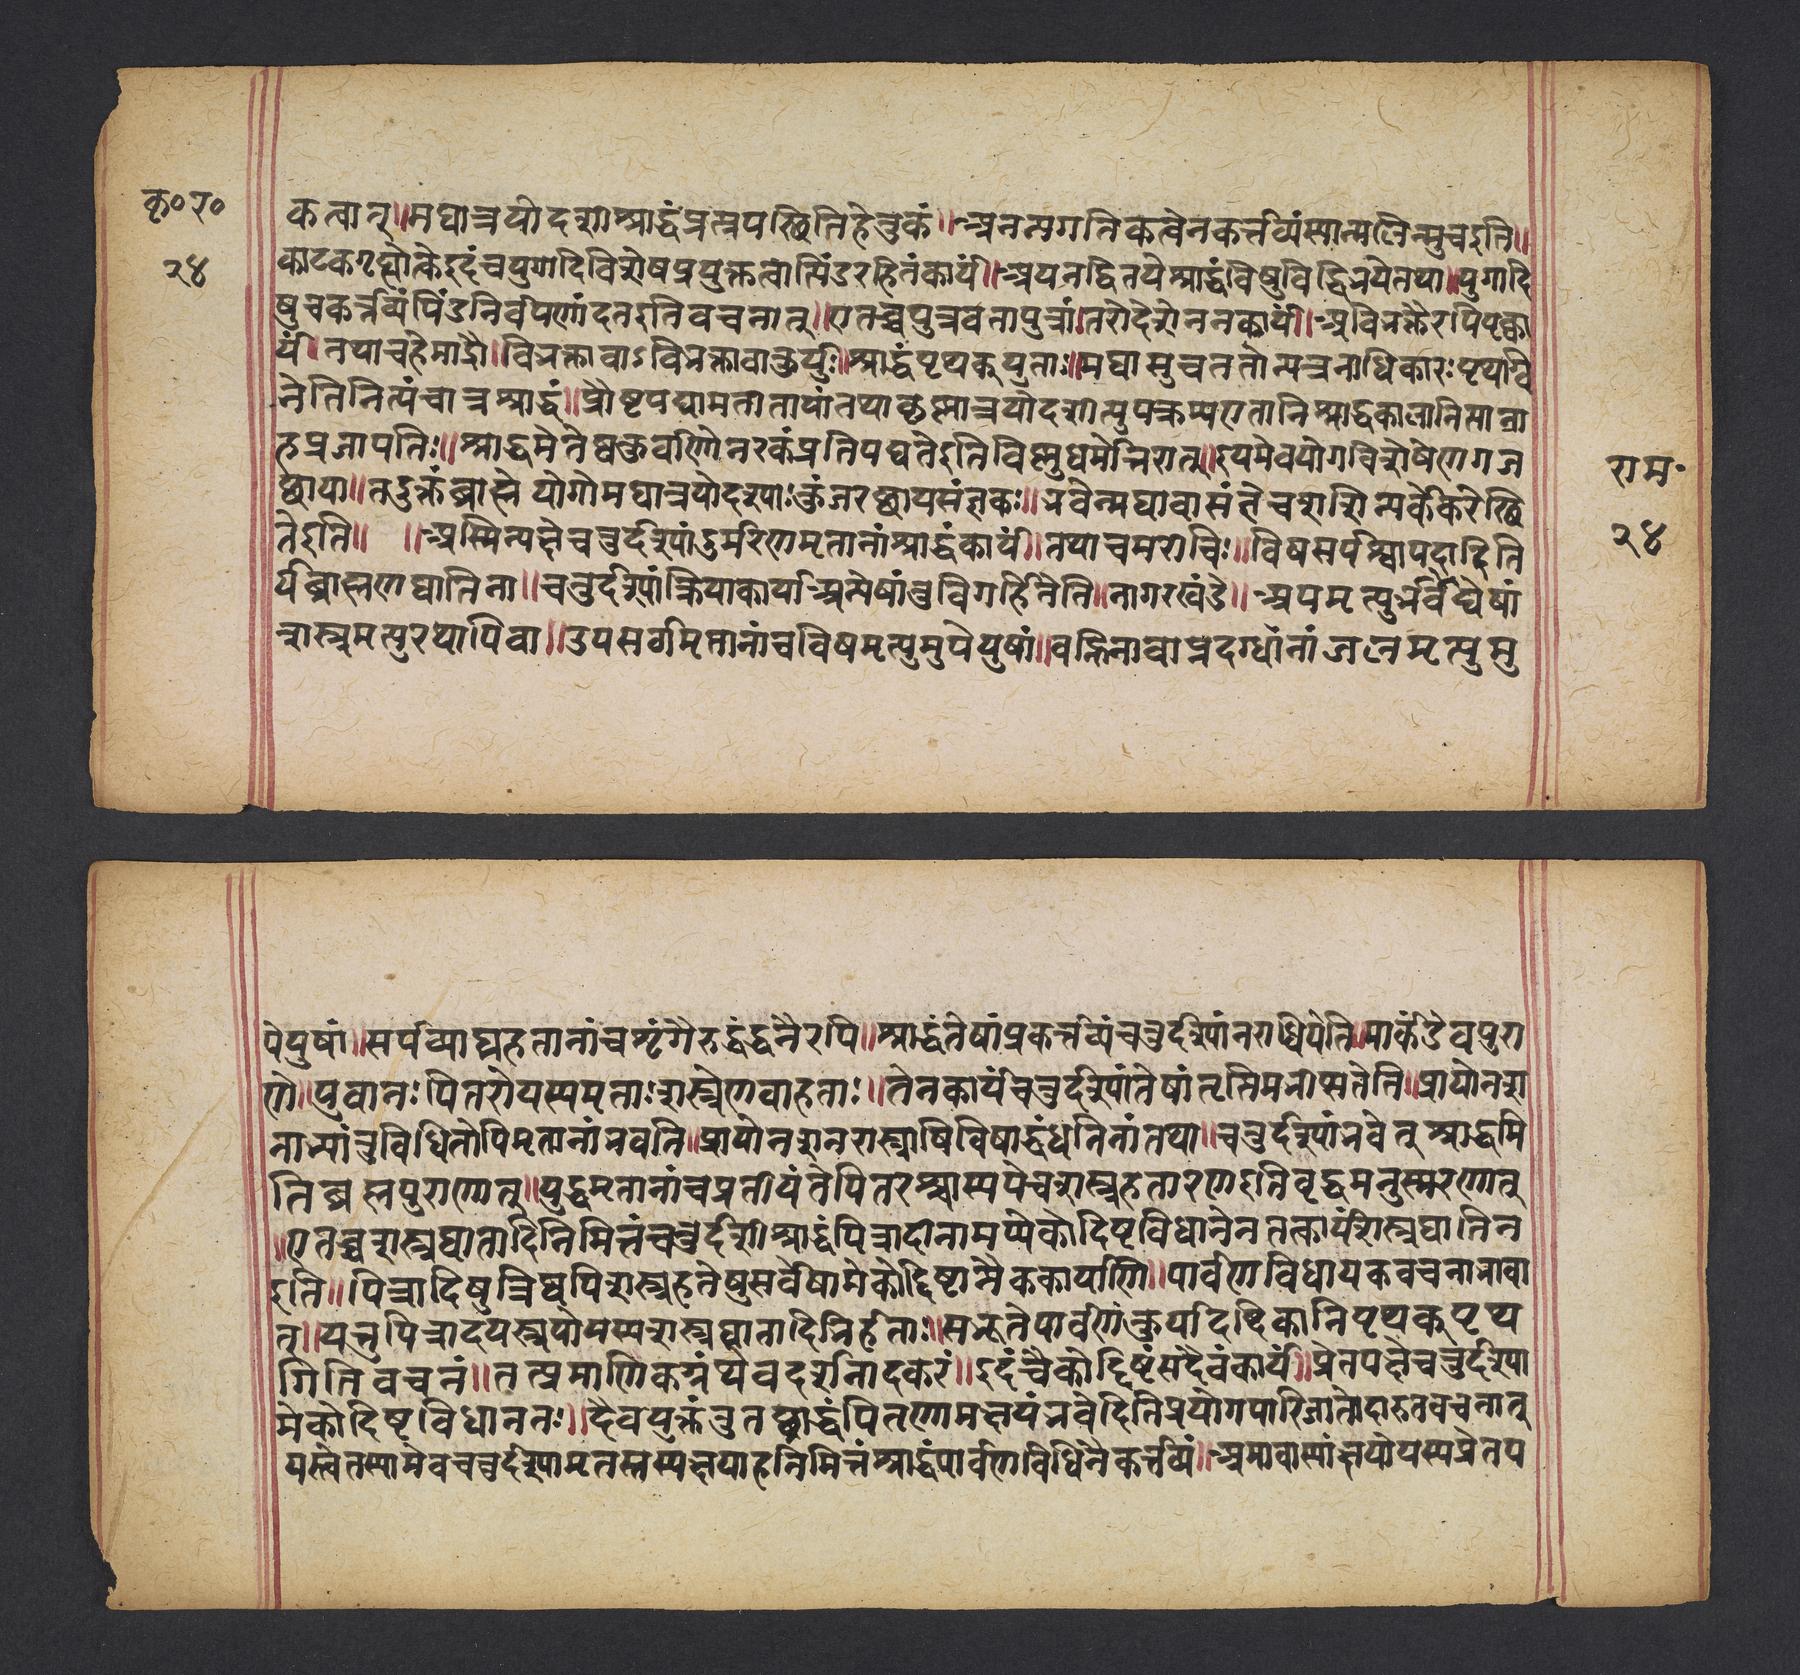 कृ० र०
२४
कत्वात्॥मघात्रयोदशीश्राद्धंप्रत्नपस्थितिहेतुकं॥अनन्यगतिकत्वेनकर्त्तव्यंस्यान्मलिम्लुचइति॥
काटकगृह्योक्तेइदंचयुगादिविशेषप्रयुक्तत्वात्पिंडरहितंकार्यं॥अयनद्वितयेश्राद्धंविषुवद्वितयेतथा॥युगादि
षुचकर्त्तव्यंपिंडनिर्वपणांदृतइतिवचनात्॥एतच्चपुत्रवतापुत्रांतरोदेशेननकार्यं॥अविभक्तैरपिपृथक्का
र्यं॥तथाचहेमाद्रौ॥विभक्तावाऽविभक्तावाकुर्युःश्राद्धंपृथक्सुताः॥मघासुचततोन्यत्रनाधिकारःपृथग्वि
नेतिनित्यंचात्रश्राद्धं॥प्रौष्टपद्यामतीतायांतथाकृष्णात्रयोदशीत्युपक्रम्यएतानिश्राद्धकालानिनित्यान्या
हप्रजापतिः॥श्राद्धमेतेष्वकुर्वाणोनरकंप्रतिपद्यतेइतिविष्णुधर्मोक्तेरात्॥इयमेवयोगविशेषेणगज
छाया॥तदुक्तंब्राह्मे योगोमघात्रयोदश्याःकुंजरछायसंज्ञकः॥भवेन्मघायांसंस्थेचशशिन्यर्केकरेस्थि
तेइति॥ ॥अस्मिन्पक्षेचतुर्दश्यांदुर्मरणमृतानांश्राद्धंकार्यं॥तथाचमरीचिः॥विषसर्पश्वापदाहिति
र्यग्ब्राह्मणघातिना॥चतुर्दश्यांक्रियाकार्याअन्येषांतुविगर्हितेति॥नागरखंडे॥ अपमृत्युर्भवेद्येषां
शस्त्रमृत्युरथापिवा॥उपसर्गमृतानांचविषमृत्युमुपेयुषां॥वह्निनावाप्रदग्धानांजलेमृत्युमु
राम॰
२४
पेयुषां॥सर्पव्याघ्रहतानांचशृंगैरुद्बंद्धनैरपि॥श्राद्धंतेषांप्रकर्त्तव्यंचतुर्दश्यांनराधिपेति॥मार्कंडेयपुरा
णे॥युवानःपितरोयस्यमृताःशस्त्रेणवाहताः॥तेनकार्यंचतुर्दश्यांतेषांतृप्तिमभीप्सतेति॥प्रायोनश
नाभ्यांतुविधितोपिमृतानांभवति॥प्रायोनशनशस्त्राग्निविषोद्बंधनिनांतथा॥चतुर्दश्यांभवेत् श्राद्धमि
तिब्रह्मपुराणात्॥युद्धमृतानांचप्रतीयंतेपितरश्चास्ययेचशस्त्रहतारणेइतिवृद्धमनुस्मरणात्
॥एतच्चशस्त्रघातादिनिमित्तंचतुर्दशीश्राद्धंपित्रादीनामप्येकोदिष्टविधानेनतत्कार्यंशस्त्रघातिन
इति॥पित्रादिषुत्रिष्वपिशस्त्रहतेषुसर्वेषामेकोद्दिष्टान्येककार्याणि॥पार्वणविधायकवचनाभावा
त्॥यत्तुपित्रादयस्त्रयोयस्यशस्त्रघातादिभिर्हताः॥सभूतेपार्वणंकुर्यादब्दिकानिपृथक्पृथ
गितिवचनं॥तत्प्रमाणिकग्रंथेवदर्शनादकरं॥इदंचैकोद्दिष्टंसदैवंकार्यं॥प्रेतपक्षेचतुर्दश्या
मेकोदिष्टविधानतः॥दैवयुक्तंतुतछ्राद्धंपितृणामक्षयंभवेदितिप्रयोगपारिजातोदाहृतवचनात्
यस्त्वेतस्यामेवचतुर्दश्यामृतस्तस्यक्षयाहनिमित्तंश्राद्धंपार्वणविधिनैकर्त्तव्यं॥अमावास्यांक्षयोयस्यप्रेतप